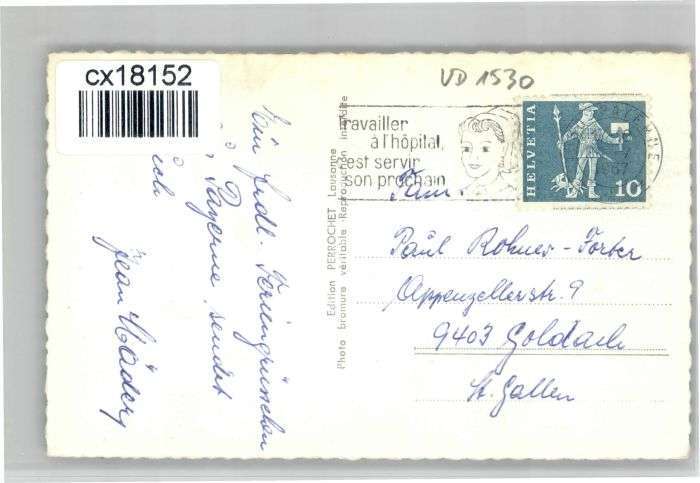 cx18152
VD 1530
Travailler
à l'hôpital,
c'est servir
son prochain
PAYERNE
HELVETIA
10
Edition PERROCHET Lausanne
Photo bromure véritable - Reproduction interdite
Ein frdl. Feriengrüsschen
Payerne sendet
Jean Mädery
Fam.
Paul Rohner-Forter
Appenzellerstr. 9
9403 Goldach
St. Gallen